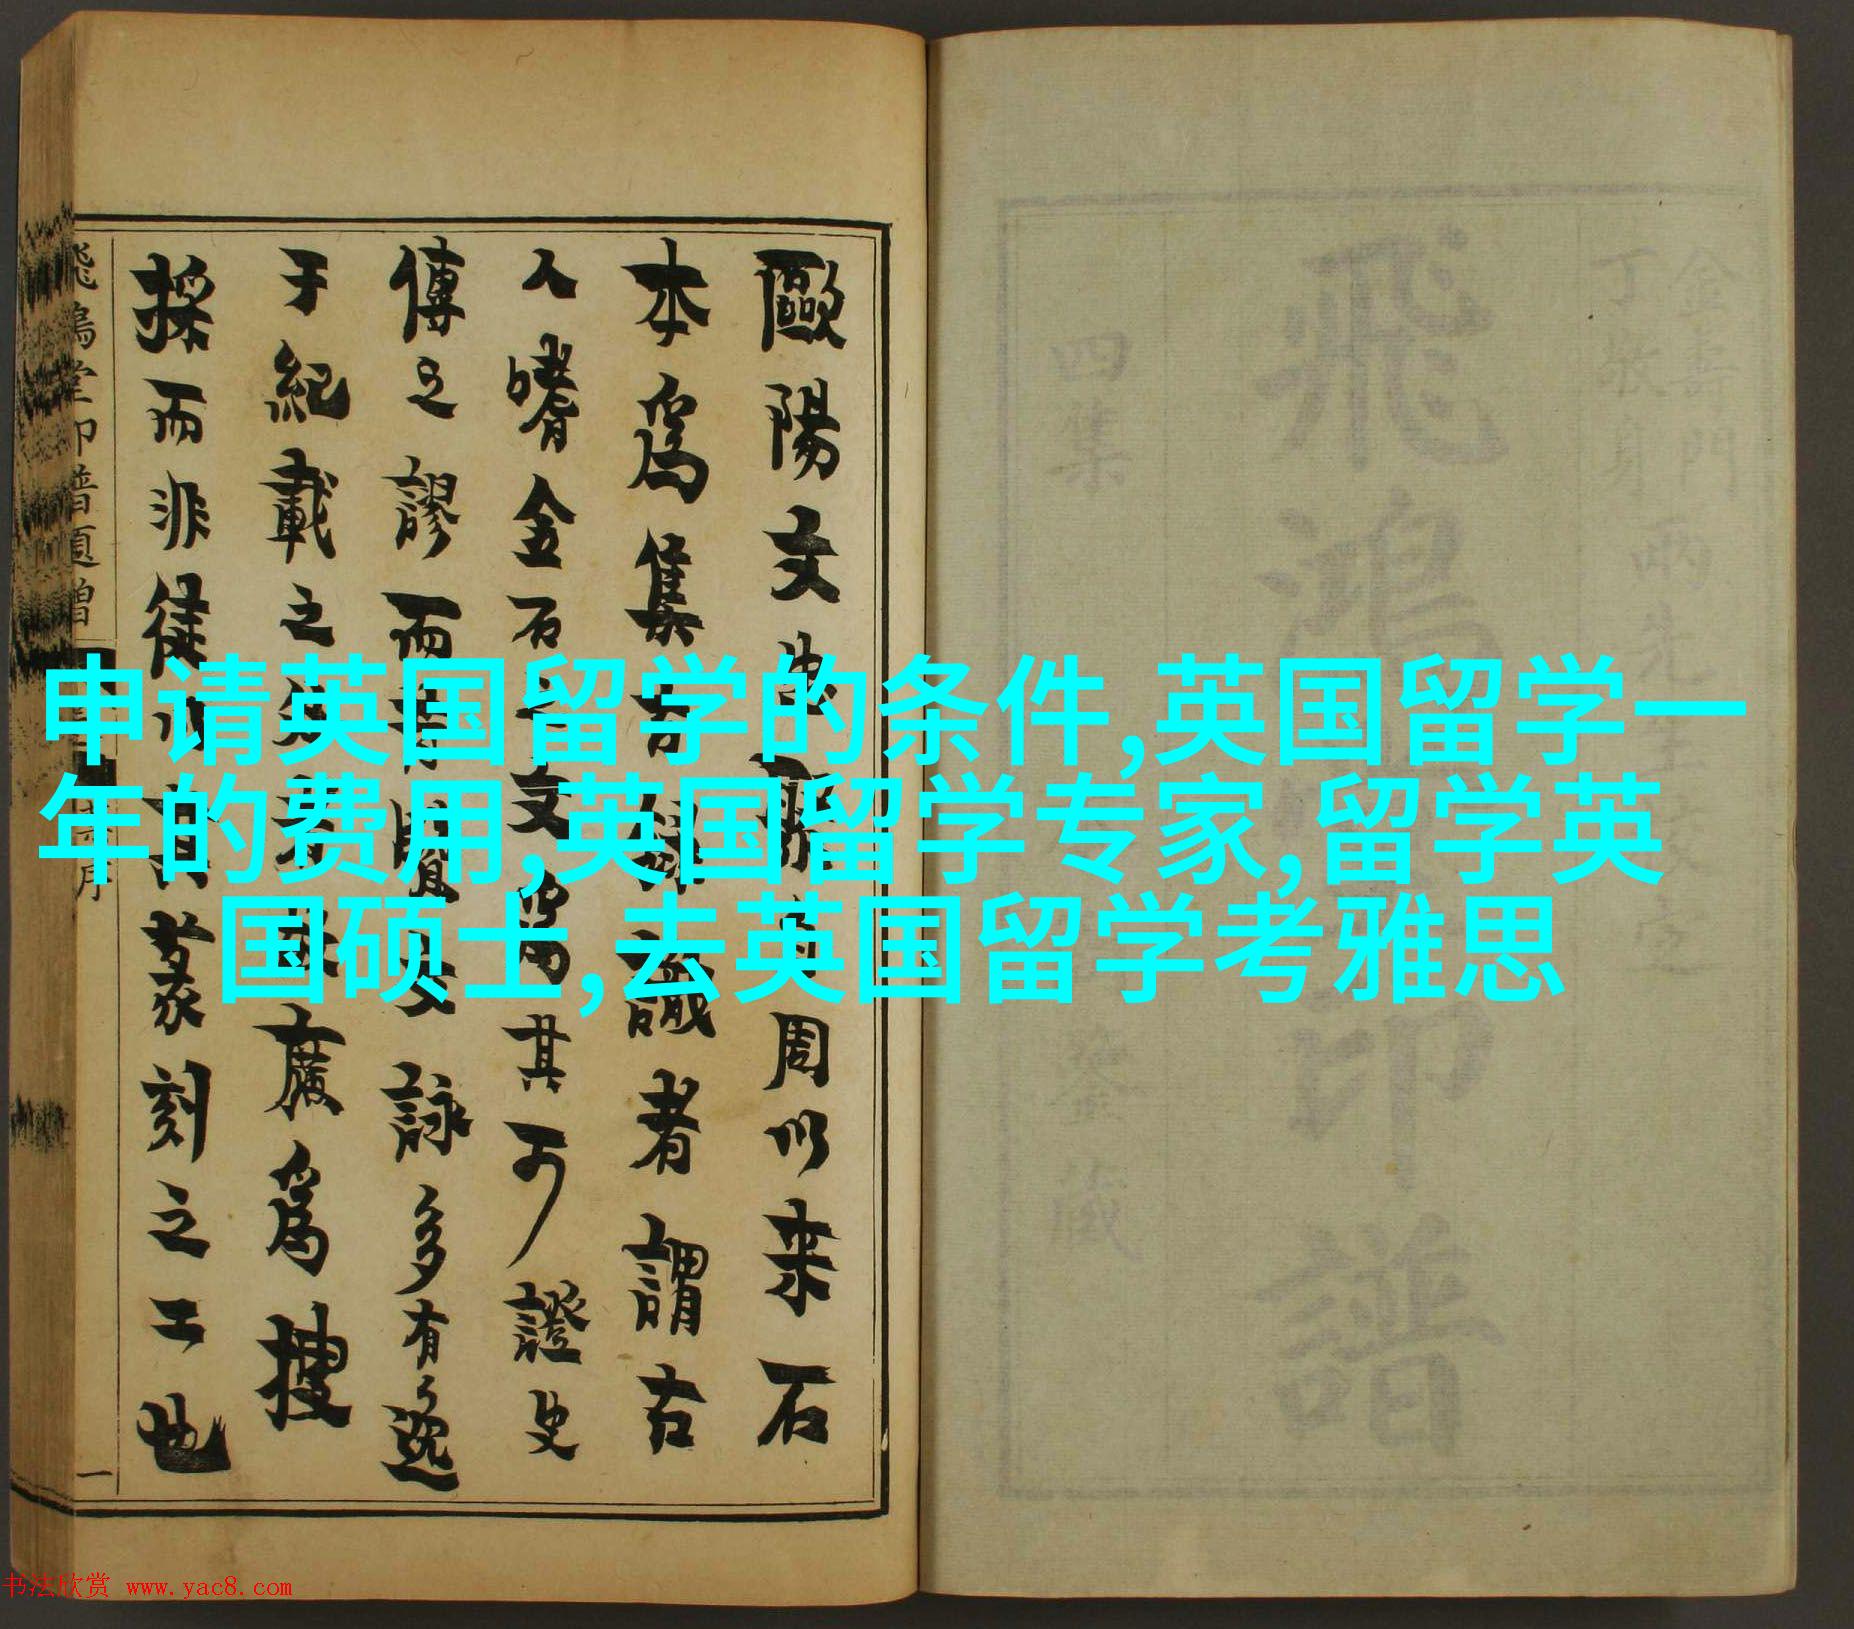 申请英国留学的条件,英国留学一
年的费用,英国留学专家,留学英
国硕士,去英国留学考雅思
金壽門
丁敬身 兩先生
飛鴻堂印譜
四集 鑒藏
歐陽文忠 有周以来石
本為集古錄識者謂古
人嗜金石之文為其可證史
傳之謬而 覽文詠多有逸
于紀載之外者故廣為搜
採而非徒以其篆刻之工也
飛鴻堂印譜 序 一
书法欣赏 www.yac8.com